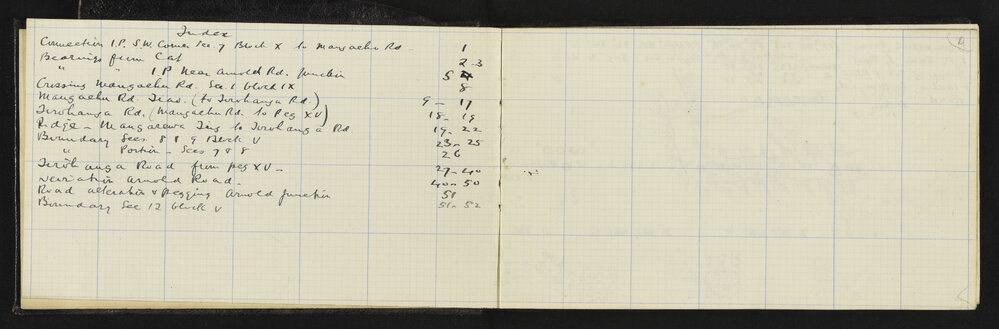 Index
Connection I.P. S.W. Corner Sec. 7 Block X to Mangaehu Rd 1
Bearings from Cat 2-3
" " I.P Near Arnold Rd. Junction 5
Crossing Mangaehu Rd. Sec. 1 block IX 8
Mangaehu Rd. Trav. (to Tirohanga Rd.) 9 - 17
Tirohanga Rd. (Mangaehu Rd. to Peg XV) 18 - 19
Ridge - Mangarewa Trig to Tirohanga Rd. 19 - 22
Boundary Secs. 8 & 9 Block V 23 - 25
" Portion - Secs 7 & 8 26
Tirohanga Road from peg XV - 27 - 40
Deviation Arnold Road - 40 - 50
Road alteration & pegging Arnold junction 51
Boundary Sec 12 block V 51 - 52